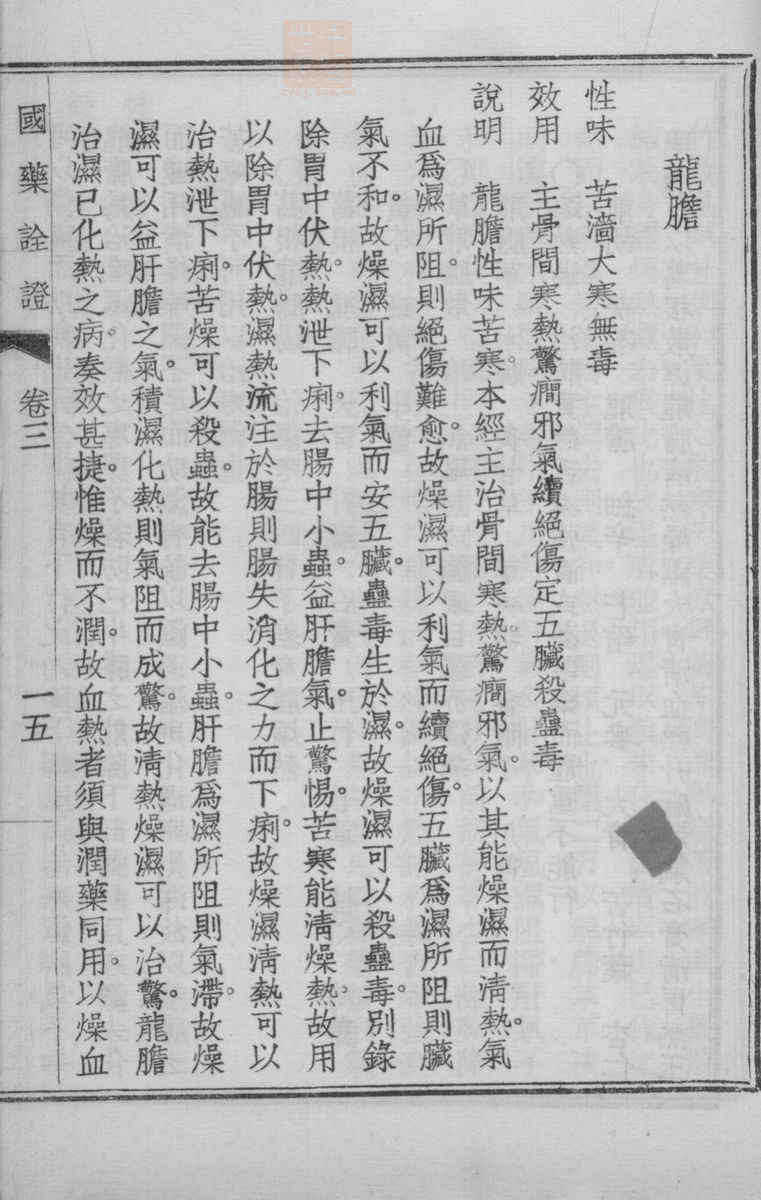 龍膽
性味　苦濇大寒無毒
效用　主骨間寒熱驚癎邪氣續絕傷定五臟殺蠱毒
說明　龍膽性味苦寒。本經主治骨間寒熱。驚癎邪氣。以其能燥濕而清熱。氣
血爲濕所阻。則絕傷難愈。故燥濕可以利氣而續絕傷。五臟爲濕所阻則臟
氣不和。故燥濕可以利氣而安五臟。蠱毒生於濕。故燥濕可以殺蠱毒。別錄
除胃中伏熱。熱泄下痢。去腸中小蟲。益肝膽氣。止驚惕。苦寒能清燥熱。故用
以除胃中伏熱。濕熱流注於腸則腸失消化之力而下痢。故燥濕清熱可以
治熱泄下痢。苦燥可以殺蟲。故能去腸中小蟲。肝膽爲濕所阻則氣滯。故燥
濕可以益肝膽之氣。積濕化熱則氣阻而成驚。故清熱燥濕可以治驚。龍膽
治濕已化熱之病。奏效甚捷。惟燥而不潤。故血熱者須與潤藥同用。以燥血
國藥詮證
卷三
一五